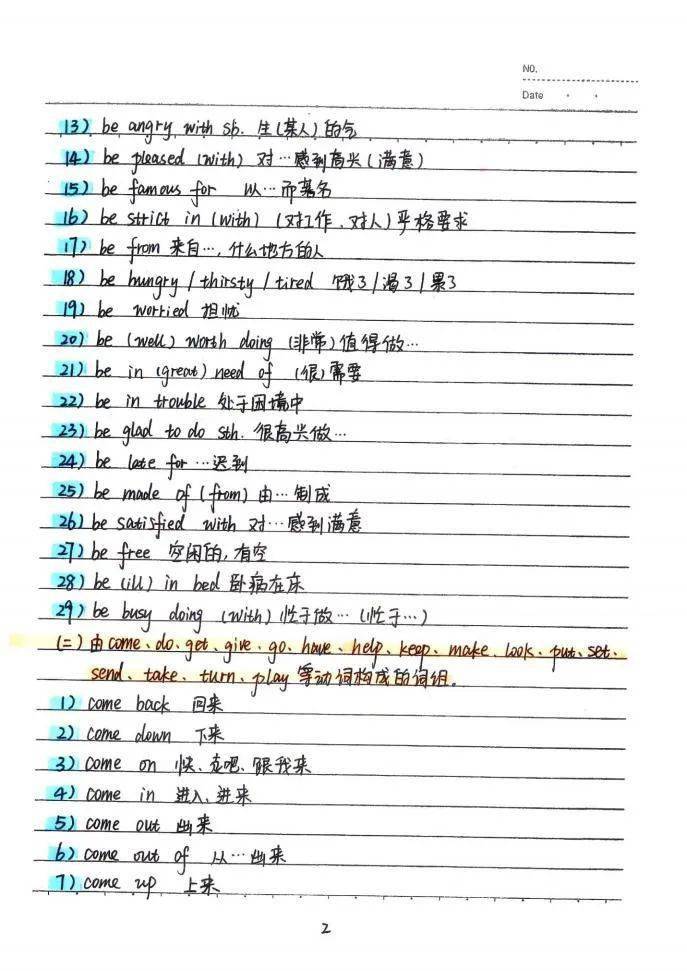 NO.
Date
13) be angry with sb. 生(某人)的气
14) be pleased (with) 对…感到高兴(满意)
15) be famous for 以…而著名
16) be strict in (with) (对工作、对人)严格要求
17) be from 来自…,什么地方的人
18) be hungry / thirsty / tired 饿了/渴了/累了
19) be worried 担忧
20) be (well) worth doing (非常)值得做…
21) be in (great) need of (很)需要
22) be in trouble 处于困境中
23) be glad to do sth. 很高兴做…
24) be late for …迟到
25) be made of (from) 由…制成
26) be satisfied with 对…感到满意
27) be free 空闲的,有空
28) be (ill) in bed 卧病在床
29) be busy doing (with) 忙于做…(忙于…)
(二) 由come、do、get、give、go、have、help、keep、make、look、put、set、
send、take、turn、play 等动词构成的词组。
1) come back 回来
2) come down 下来
3) come on 快、走吧、跟我来
4) come in 进入、进来
5) come out 出来
6) come out of 从…出来
7) come up 上来
2